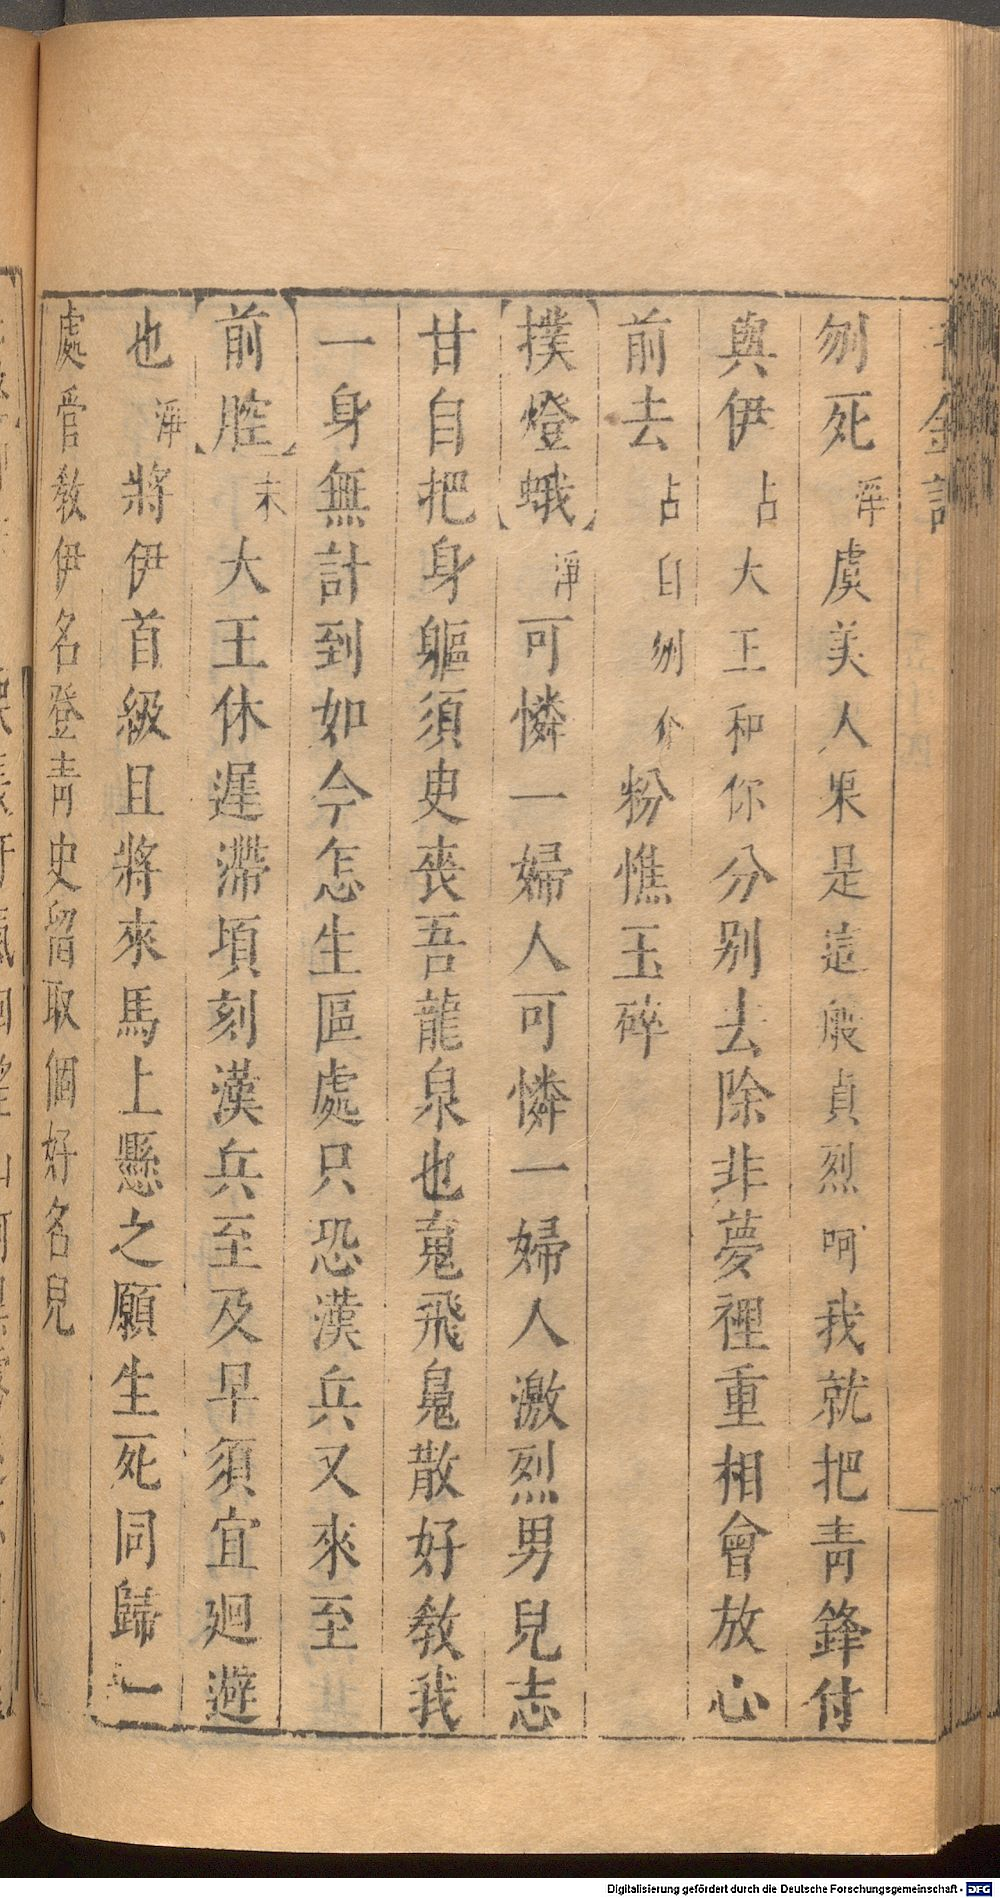 千金記
刎死淨虞美人果是這般貞烈呵我就把青鋒付
與伊占大王和你分别去除非夢裡重相會放心
前去占自刎介粉憔玉碎
撲燈蛾淨可憐一婦人可憐一婦人激烈男兒志
甘自把身軀須臾喪吾龍泉也䰟飛鬼散好教我
一身無計到如今怎生區處只恐漢兵又來至
前腔末大王休遲滯頃刻漢兵至及早須宜迴避
也淨將伊首級且將來馬上懸之願生死同歸一
處管教伊名登青史留取個好名兒
Digitalisierung gefördert durch die Deutsche Forschungsgemeinschaft - DFG